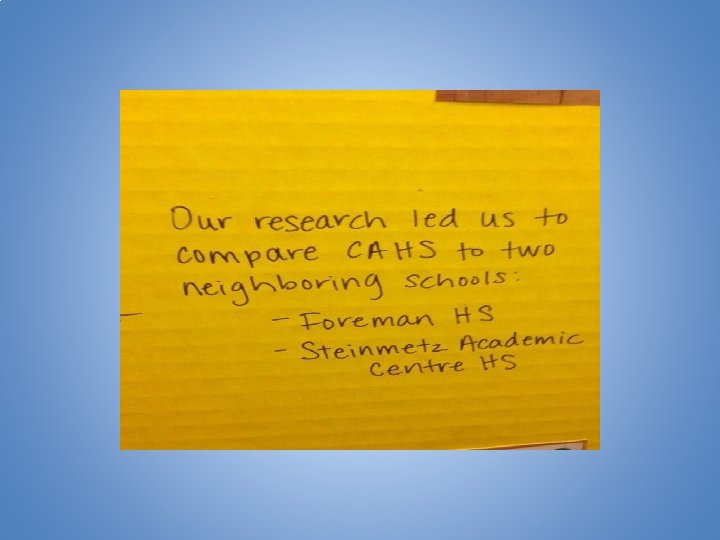 Our research led us to
compare CAHS to two
neighboring schools:
- Foreman HS
- Steinmetz Academic
Centre HS